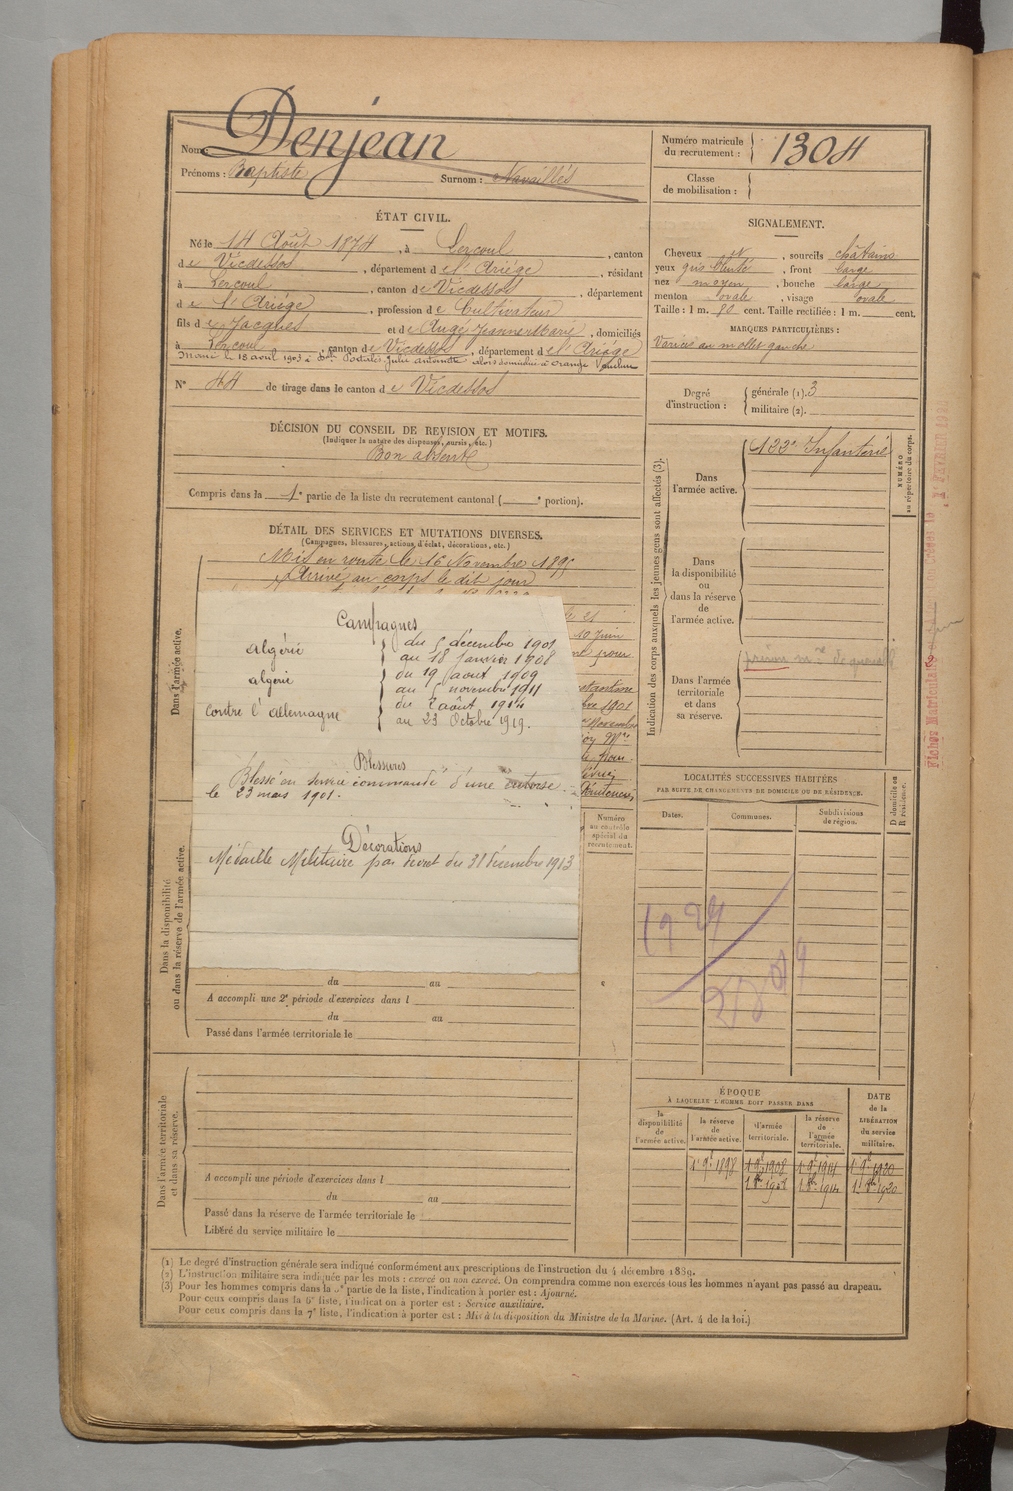 Nom: Denjean
Prénoms : Baptiste Surnom : Navaillés
Numéro matricule du recrutement : 1304
Classe de mobilisation :
ÉTAT CIVIL.
Né le 14 Août 1874, à Lercoul, canton
de Vicdessos, département de l'Ariége, résidant
à Lercoul, canton de Vicdessos, département
de l'Ariége, profession de Cultivateur
fils de Jacques et de Augé Jeanne Marie, domiciliés
à Lercoul, canton de Vicdessos, département de l'Ariége
Marié le 18 avril 1903 à Julie Antoinette alors domicilié à Orange Vaucluse
N° 44 de tirage dans le canton de Vicdessos
SIGNALEMENT.
Cheveux et, sourcils châtains
yeux gris bleuté, front large
nez moyen, bouche large
menton ovale, visage ovale
Taille : 1 m. 80 cent. Taille rectifiée : 1 m. cent.
MARQUES PARTICULIÈRES :
Varices au mollet gauche
Degré d'instruction : générale (1). 3
militaire (2).
DÉCISION DU CONSEIL DE REVISION ET MOTIFS.
(Indiquer la nature des dispenses, sursis, etc.)
Bon absent
Compris dans la 1e partie de la liste du recrutement cantonal ( e portion).
DÉTAIL DES SERVICES ET MUTATIONS DIVERSES.
(Campagnes, blessures, actions d'éclat, décorations, etc.)
Dans l'armée active.
Mis en route le 16 Novembre 1895
Arrivé au corps le dit jour
Campagnes
algérie du 5 décembre 1901
au 18 janvier 1908
algérie du 19 août 1909
au 5 novembre 1911
contre l'allemagne du 2 août 1914
au 23 Octobre 1919.
Blessures
Blessé en service commandé d'une entorse
le 23 mars 1901.
Décorations
Médaille Militaire par décret du 31 décembre 1913
10 Juin
pour
1901
Numéro au contrôle spécial du recrutement.
Dans la disponibilité ou dans la réserve de l'armée active.
du au
A accompli une 2e période d'exercices dans l
du au
Passé dans l'armée territoriale le
Dans l'armée territoriale et dans sa réserve.
A accompli une période d'exercices dans l
du au
Passé dans la réserve de l'armée territoriale le
Libéré du service militaire le
Indication des corps auxquels les jeunes gens sont affectés (3).
Dans l'armée active.
122e Infanterie
NUMÉRO au répertoire du corps.
Dans la disponibilité ou dans la réserve de l'armée active.
Dans l'armée territoriale et dans sa réserve.
LOCALITÉS SUCCESSIVES HABITÉES
PAR SUITE DE CHANGEMENTS DE DOMICILE OU DE RÉSIDENCE.
Dates. Communes. Subdivisions de région. D domicile ou R résidence.
ÉPOQUE
À LAQUELLE L'HOMME DOIT PASSER DANS
la disponibilité de l'armée active.
la réserve de l'armée active.
l'armée territoriale.
la réserve de l'armée territoriale.
DATE de la LIBÉRATION du service militaire.
(1) Le degré d'instruction générale sera indiqué conformément aux prescriptions de l'instruction du 4 décembre 1889.
(2) L'instruction militaire sera indiquée par les mots : exercé ou non exercé. On comprendra comme non exercés tous les hommes n'ayant pas passé au drapeau.
(3) Pour les hommes compris dans la 5e partie de la liste, l'indication à porter est : Ajourné.
Pour ceux compris dans la 6e liste, l'indication à porter est : Service auxiliaire.
Pour ceux compris dans la 7e liste, l'indication à porter est : Mis à la disposition du Ministre de la Marine. (Art. 4 de la loi.)